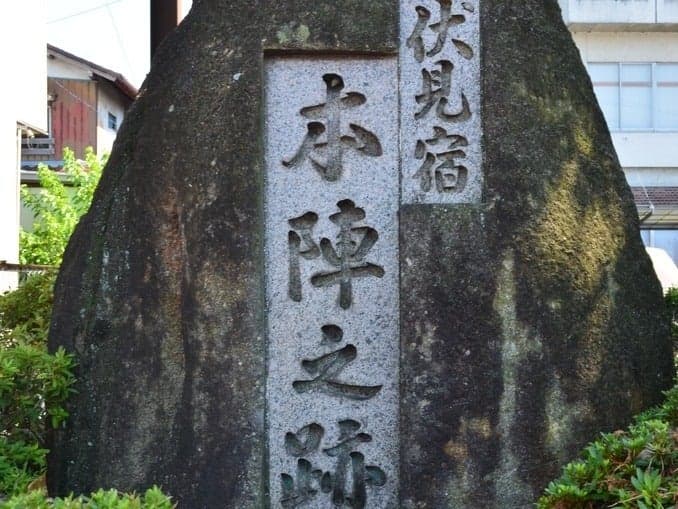 伏見宿
本陣之跡